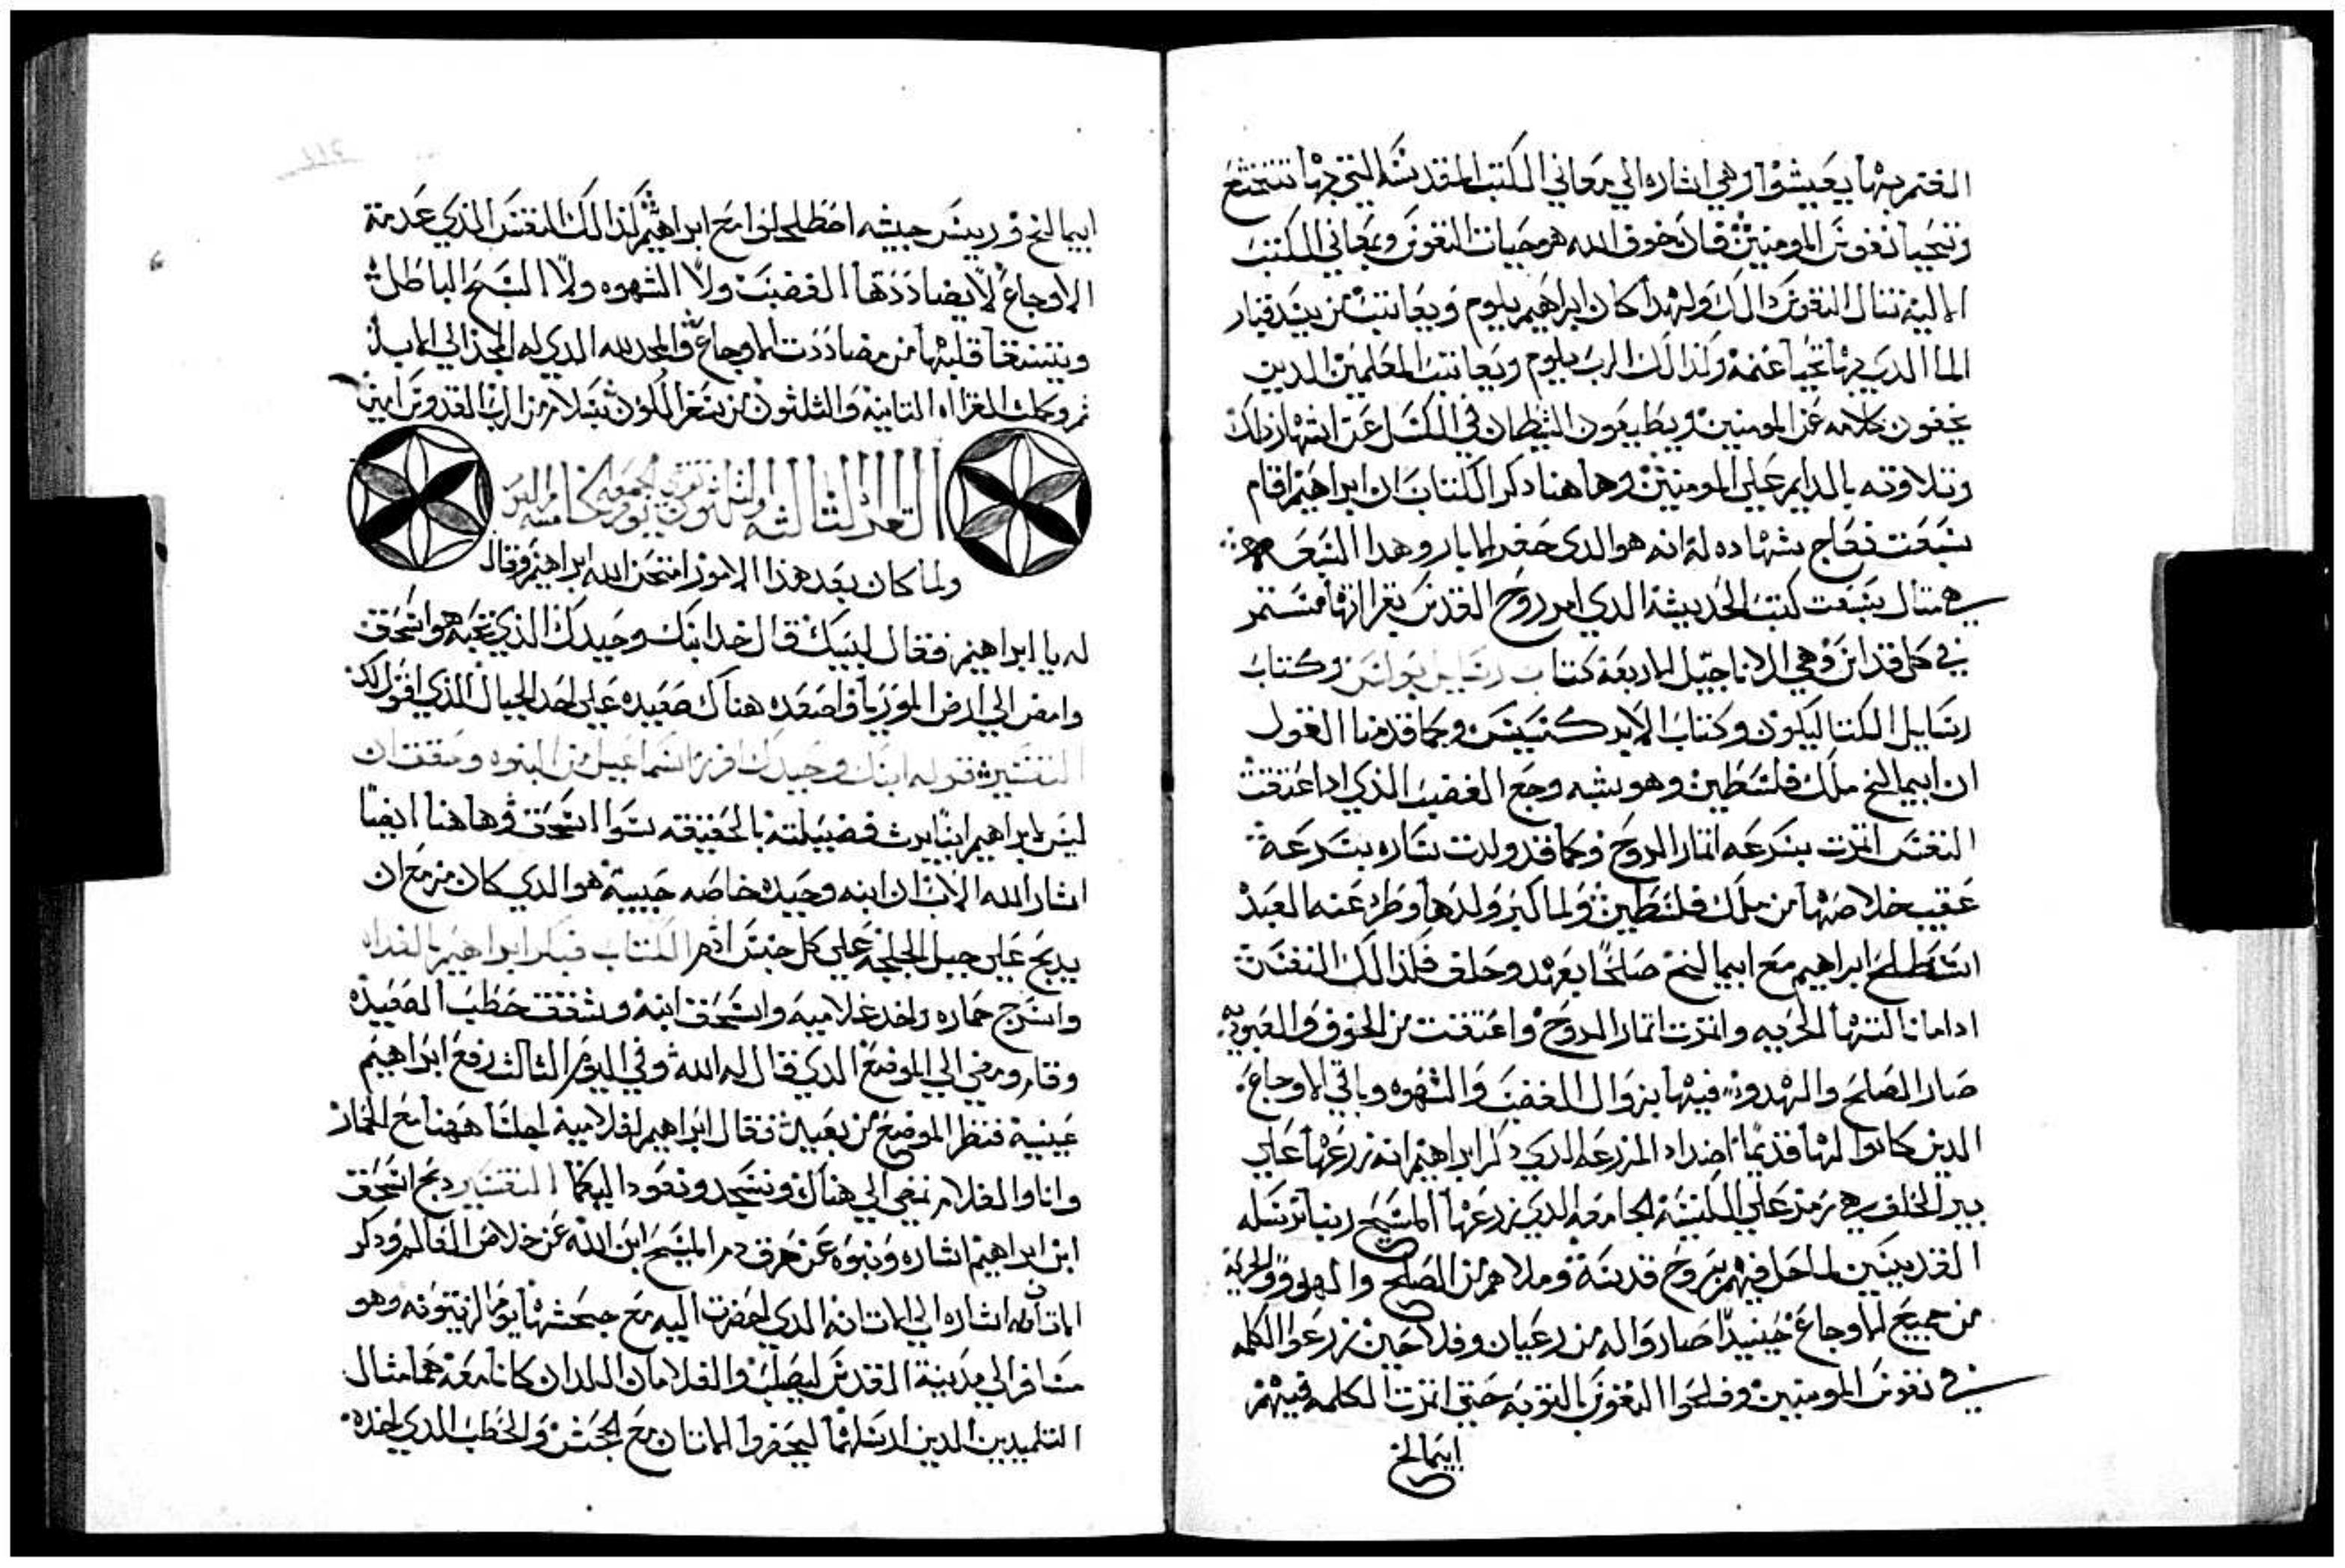 الغنم بها يعيشوا وهي اشاره الي معاني الكتب المقدسه التي بها تنتجع
وتتحيا نفوس المومنين فان خوف الله هو حيات النفوس وبمعاني الكتب
الاليه تنال النفوس دالك ولهدا كان ابراهيم يلوم ويعاتب من يسد فيار
الما الدي بها تحيا غنمه وكدالك الرب يلوم ويعاتب المعلمين الدين
يخفون كلامه عن المومنين ويطيعون الشيطان في الكسل عن اشهار دلك
وتلاوته بالدايم علي المومنين وهاهنا دكر الكتاب ان ابراهيم اقام
بسبعت نعاج شهاده له انه هو الدي حفر الابار وهدا السبع
هي متال بسبعت كتب الحديثه الدي امر روح القدس بقراتها مستمر
في كل قداس وهي الاناجيل الاربعه كتاب رسايل بولس وكتاب
رسايل الكتاليكون وكتاب الابركسيس وكما قدمنا القول
ان ابيمالخ ملك فلسطين وهو يشبه وجع الغضب الذي ادا عتقت
النفس اتمرت بسرعه اتمار الروح وكما قد ولدت ساره بسرعه
عقيب خلاصها من ملك فلسطين ولما كبر ولدها وطرد عنه العبد
اسطلح ابراهيم مع ابيمالخ صلحا بعهد وحلف فكدالك النفس
ادا ما نالتها الحريه واتمرت اتمار الروح واعتقت من الخوف والعبوديه
صار الصلح والهدو فيها بزوال الغضب والشهوه وباقي الاوجاع
الدين كانوا لها قديما اضداد المزرعه الدي دكر ابراهيم انه زرعها علي
بير الحلف هي رمز علي الكنيسه الجامعه الدي زرعها المسيح ربنا برسله
القديسين لما حل فيهم بروح قدسه وملاهم من الصلح والهدوو والحريه
من جميع الاوجاع حينيدا صاروا له من رعيان وفلاحين زرعوا الكلمه
في نفوس المومنين وفلحوا النفوس بالتوبه حتي اتمرت الكلمه فيهم
ابيمالخ
ابيمالخ وريس جيشه اصطلحوا مع ابراهيم كدالك النفس الذي عدمة
الاوجاع لا يضاددها الغضب ولا الشهوه ولا السبح الباطل
ويستغنا قلبها من مضاددت الاوجاع والمجد لله الدي له المجد الي الابد
تم وكملت القراه التامنه والثلثون من سفر التكوين بسلام من الرب القدوس امين
القراه الثالثه والثلثون تقرى يوم جمعة
ولما كان بعد هذا الامور امتحن الله ابراهيم وقال
له يا ابراهيم فقال لبيك قال خد ابنك وحيدك الذي تحبه هو اسحق
وامض الي ارض الموريا واصعده هناك صعيده علي احد الجبال الذي اقول لك
التفسير قوله ابنك وحيدك افرز اسماعيل من البنوه وحقق ان
ليس لابراهيم ابنا يرث فضيلته بالحقيقه سوا اسحق وهاهنا ايضا
اشار الله الاب ان ابنه وحيده خاصه حبيبه هو الدي كان مزمع ان
يدبح علي جبل الجلجله علي كل جنس ادم الكتاب فبكر ابراهيم بالغداه
واسرج حماره واخد غلاميه واسحق ابنه وشقق حطب الصعيده
وقام ومضي الي الموضع الدي قال له الله وفي اليوم التالت رفع ابراهيم
عينيه فنظر الموضع من بعيد فقال ابراهيم لغلاميه اجلسا ههنا مع الحمار
وانا والغلام نمضي الي هناك ونسجد ونعود اليكما التفسير دبح اسحق
ابن ابراهيم اشاره ونبوه عن هرق دم المسيح ابن الله عن خلاص العالم ودكر
الاتانه اشاره الي الاتانه الدي احضرت اليه مع جحشها يوم الزيتونه وهو
مسافر الي مدينة القدس ليصلب والغلامان اللدان كانا معه هما متال
التلميدين الدين ارسلهما ليحضروا الاتان مع الجحش والحطب الدي اخده